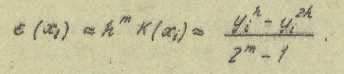 ε(x₁) ≈ h^m K(x_i) ≈ (y_i^h - y_i^{2h}) / (2^m - 1).